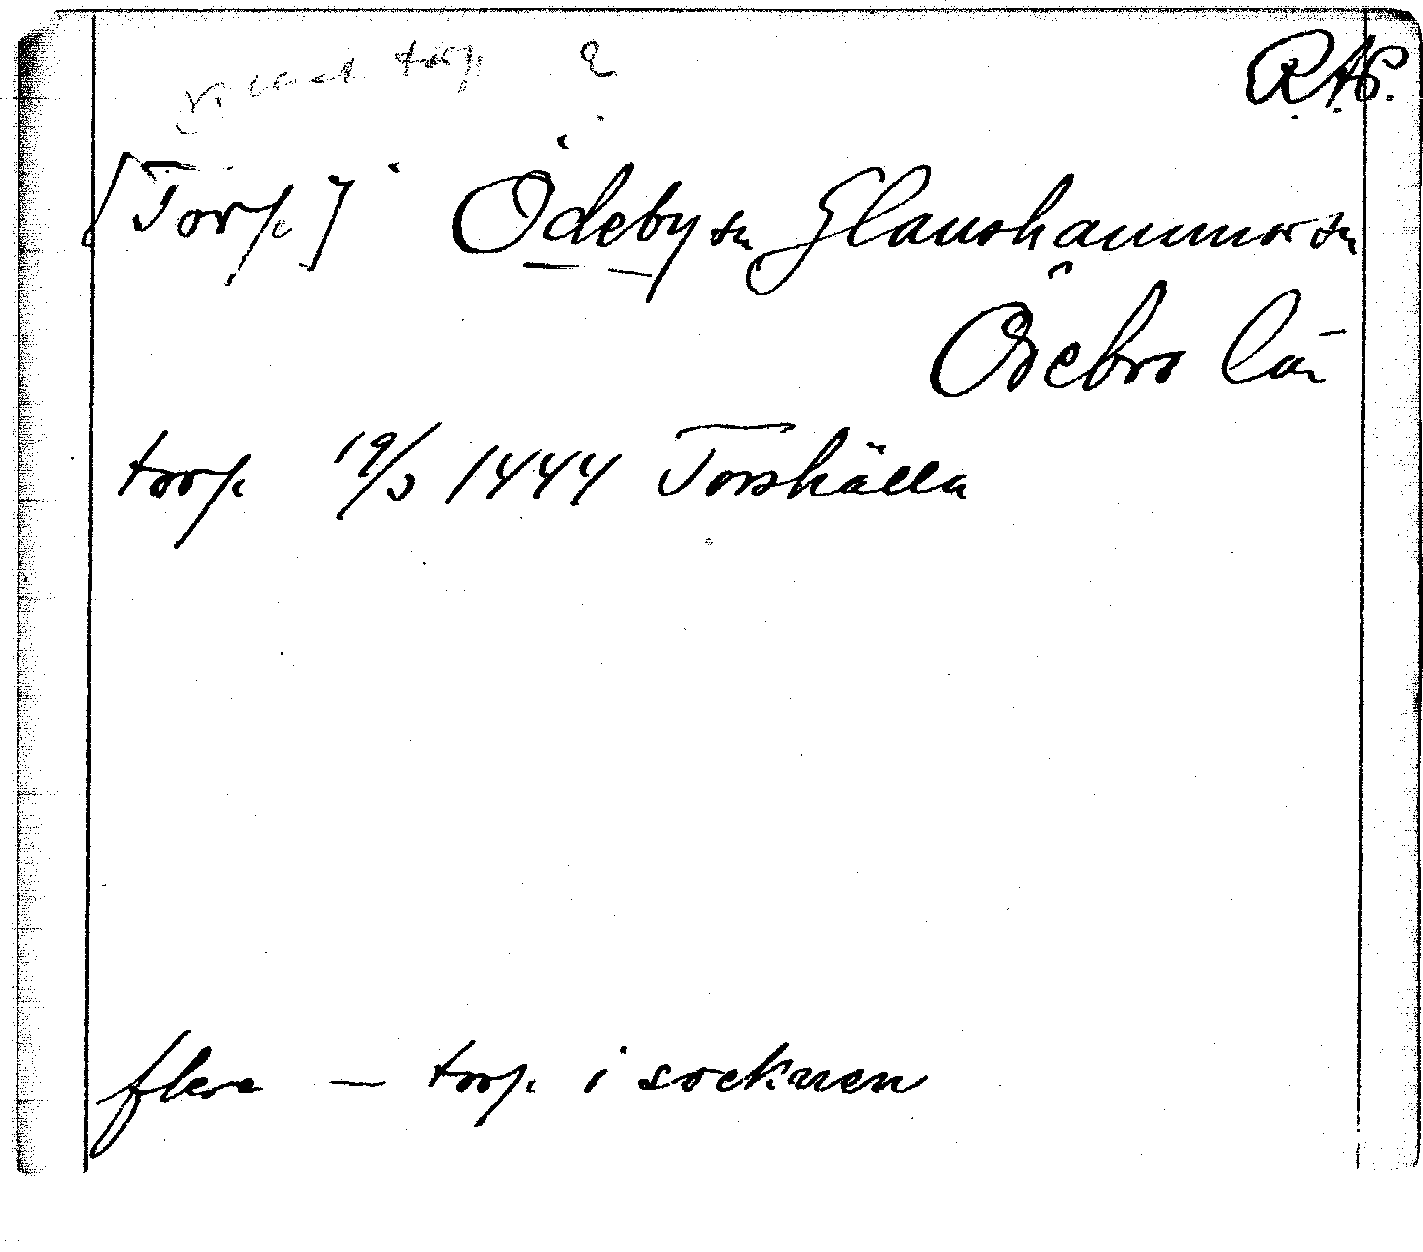 torp ? RAP.
[Torp] Ödeby sn Glanshammar sn
Örebro län
torp 19/3 1444 Torshälla
flera — torp i socknen